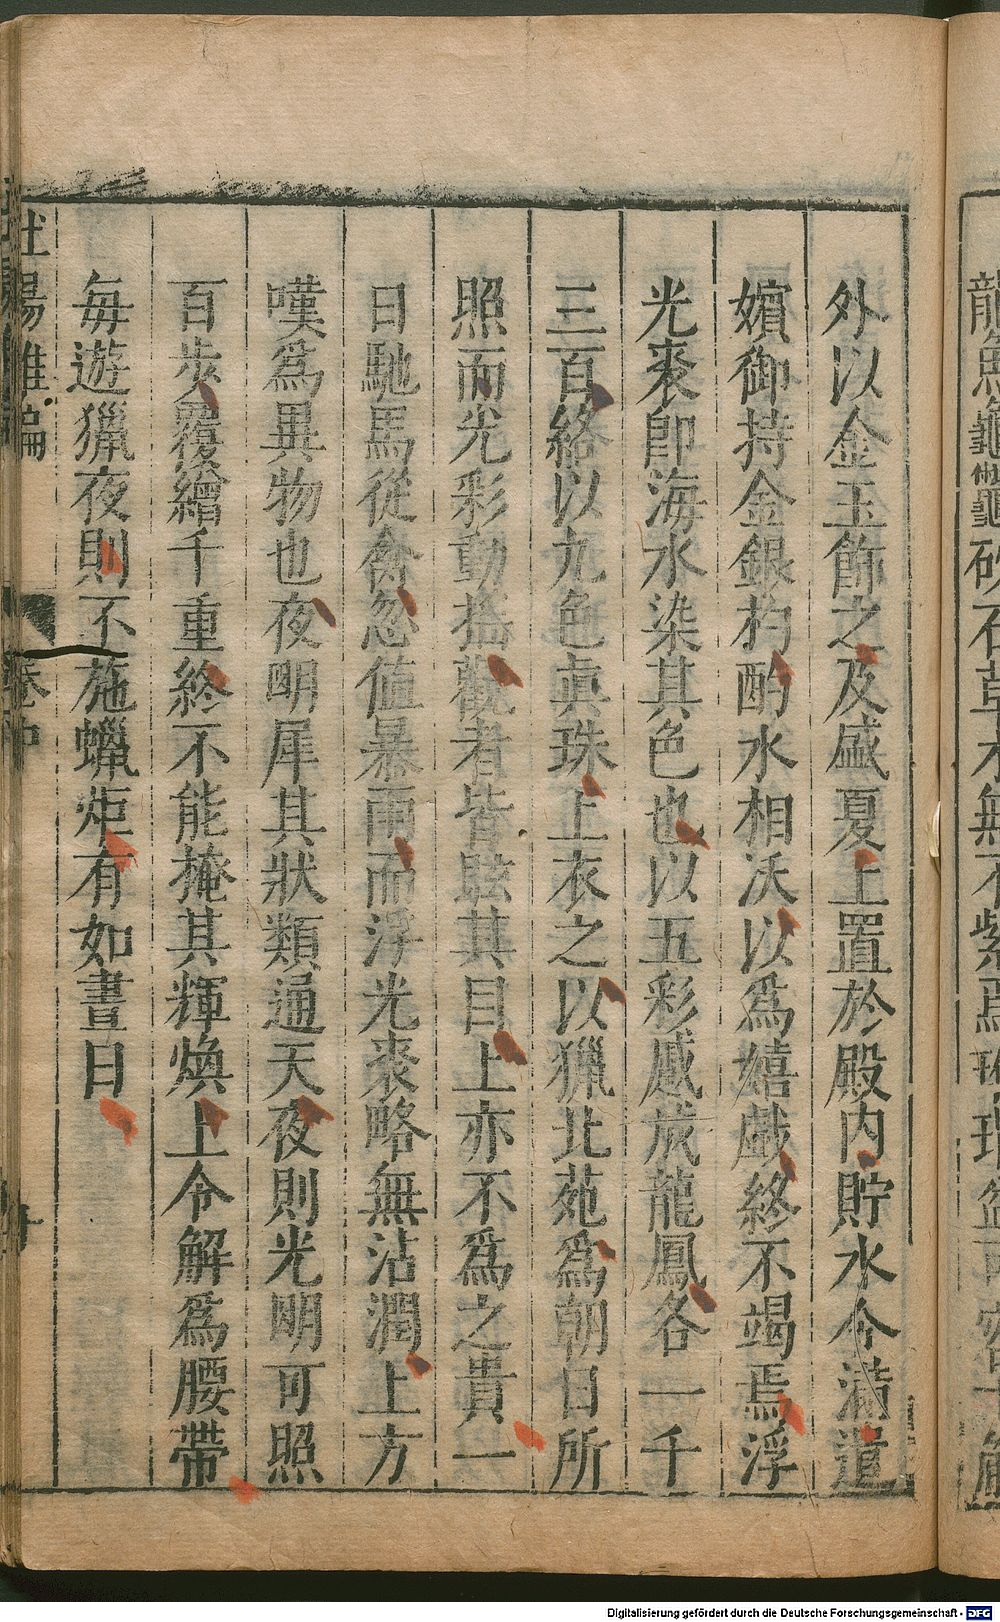 外以金玉飾之及盛夏上置於殿內貯水令滿遣
嬪御持金銀杓酌水相沃以爲嬉戲終不竭焉浮
光裘卽海水染其色也以五彩蹙成龍鳳各一千
三百絡以九色眞珠上衣之以獵北苑爲朝日所
照而光彩動搖觀者皆眩其目上亦不爲之貴一
日馳馬從禽忽值暴雨而浮光裘略無沾潤上方
嘆爲異物也夜明犀其狀類通天夜則光明可照
百步覆繒千重終不能掩其輝煥上令解爲腰帶
每遊獵夜則不施蠟炬有如晝日
杜陽雜編
卷中
Digitalisierung gefördert durch die Deutsche Forschungsgemeinschaft - DFG